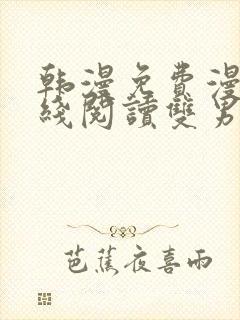 韩漫免費漫
线閱讀雙男
芭蕉夜喜雨